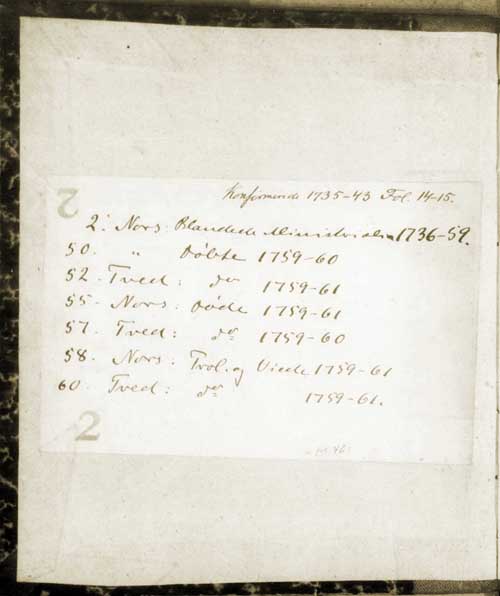 Konfirmerede 1735-43 Fol. 14-15.
2
2. Nors. Blandede Ministerialia 1736-59.
50. " Døbte 1759-60
52. Tved: do 1759-61
55. Nors. Døde 1759-61
57. Tved: do 1759-60
58. Nors: Trol. og Viede 1759-61
60. Tved: do 1759-61.
2